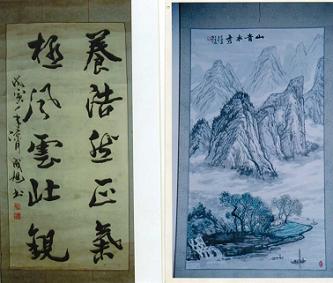 養浩然正氣
極風雲壯觀
山青水秀